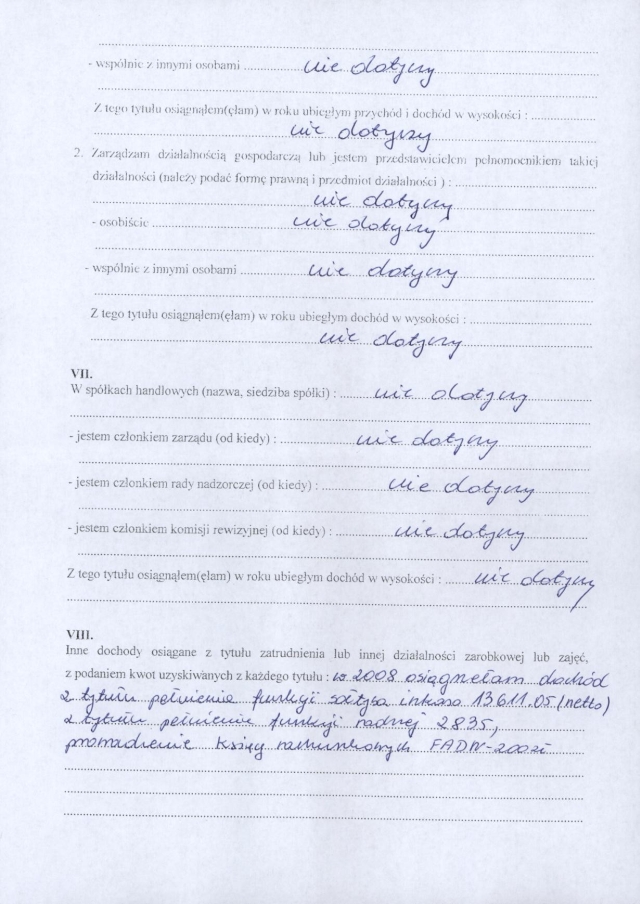 - wspólnie z innymi osobami nie dotyczy
Z tego tytułu osiągnąłem(ęłam) w roku ubiegłym przychód i dochód w wysokości :
nie dotyczy
2. Zarządzam działalnością gospodarczą lub jestem przedstawicielem pełnomocnikiem takiej
działalności (należy podać formę prawną i przedmiot działalności ) :
nie dotyczy
- osobiście nie dotyczy
- wspólnie z innymi osobami nie dotyczy
Z tego tytułu osiągnąłem(ęłam) w roku ubiegłym dochód w wysokości :
nie dotyczy
VII.
W spółkach handlowych (nazwa, siedziba spółki) : nie dotyczy
- jestem członkiem zarządu (od kiedy) : nie dotyczy
- jestem członkiem rady nadzorczej (od kiedy) : nie dotyczy
- jestem członkiem komisji rewizyjnej (od kiedy) : nie dotyczy
Z tego tytułu osiągnąłem(ęłam) w roku ubiegłym dochód w wysokości : nie dotyczy
VIII.
Inne dochody osiągane z tytułu zatrudnienia lub innej działalności zarobkowej lub zajęć,
z podaniem kwot uzyskiwanych z każdego tytułu : w 2008 osiągnełam dochód
z tytułu pełnienia funkcji sołtysa inkaso 13611.05 (netto)
z tytułu pełnienia funkcji radnej 2835,
prowadzenie Księg rachunkowych FADN-200zł